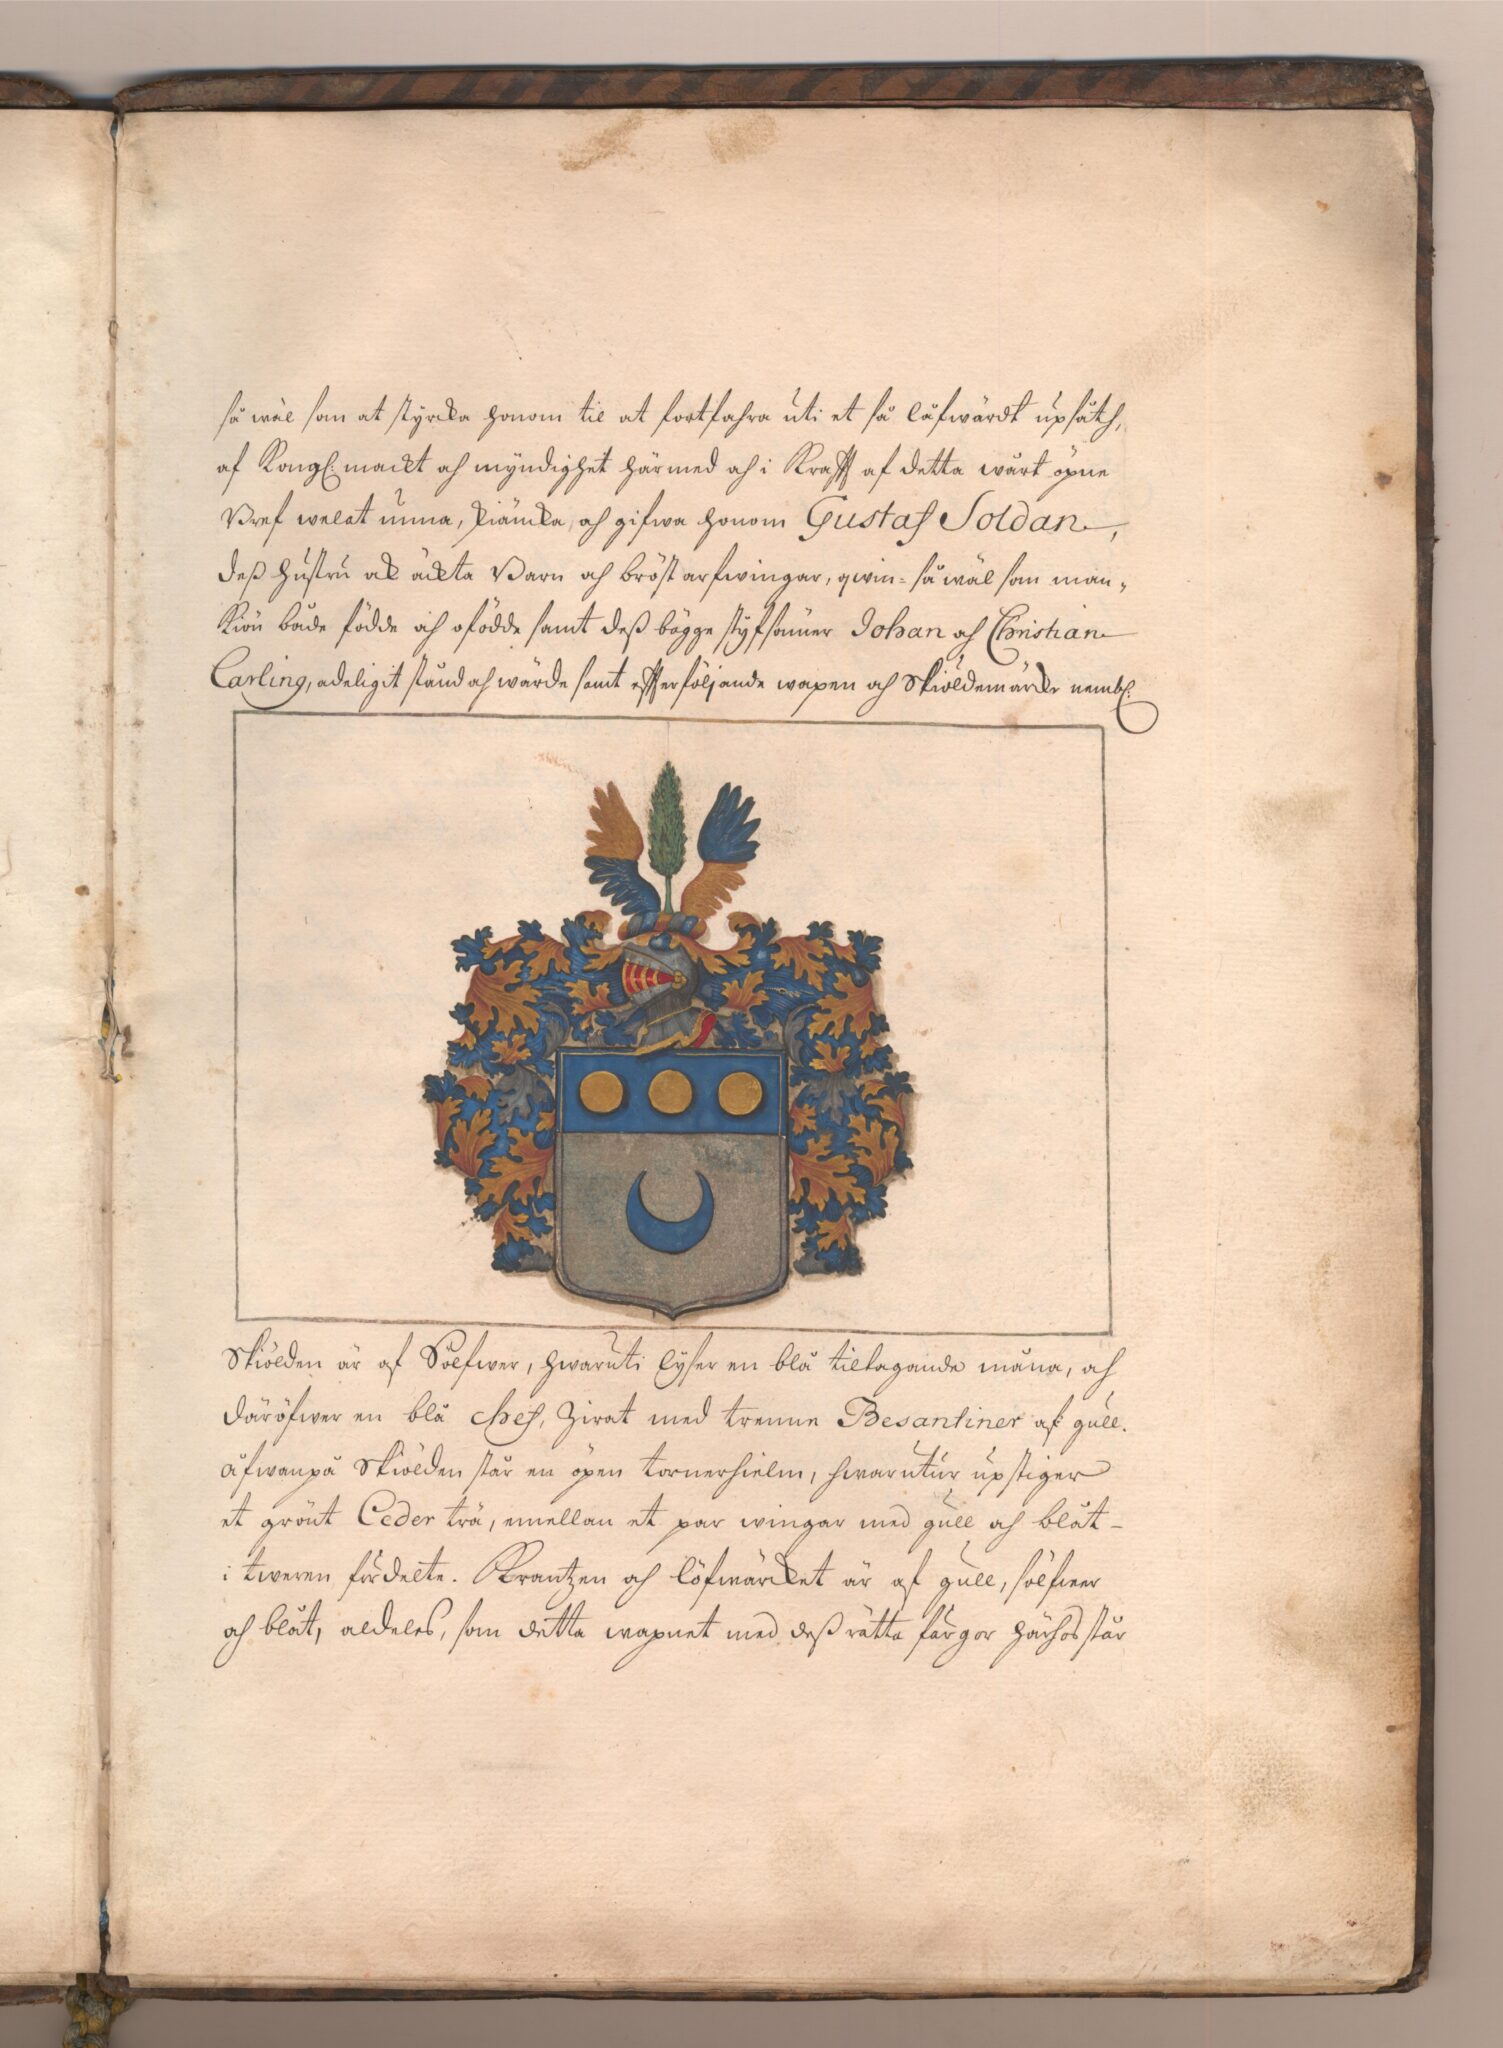 så wäl som at styrcka honom til at fortfahra uti et så låfwärdt upsåth,
af Kongl: mackt och myndighet härmed och i Krafft af detta wårt öpne
Bref welat unna, skiäncka, och gifwa honom Gustaf Soldan,
deß hustru och äckta Barn och bröst arfwingar, qwin= så wäl som man-
Kiön både födde och ofödde samt deß bägge styfsöner Johan och Christian
Carling, adeligit stånd och wärde samt effterföljande wapen och Skiöldemärcke nembl:
Skiölden är af Sölfwer, hwaruti lyser en blå tiltagande måna, och
däröfwer en blå chef, Zirat med trenne Besantiner af gull.
åfwanpå Skiölden står en öpen tornerhielm, hwarutur upstiger
et grönt Ceder trä, emellan et par wingar med gull och blåt
i tweren fördelte. Krantzen och löfwärcket är af gull, sölfwer
och blåt, aldeles, som detta wapnet med deß rätta färgor härhos står